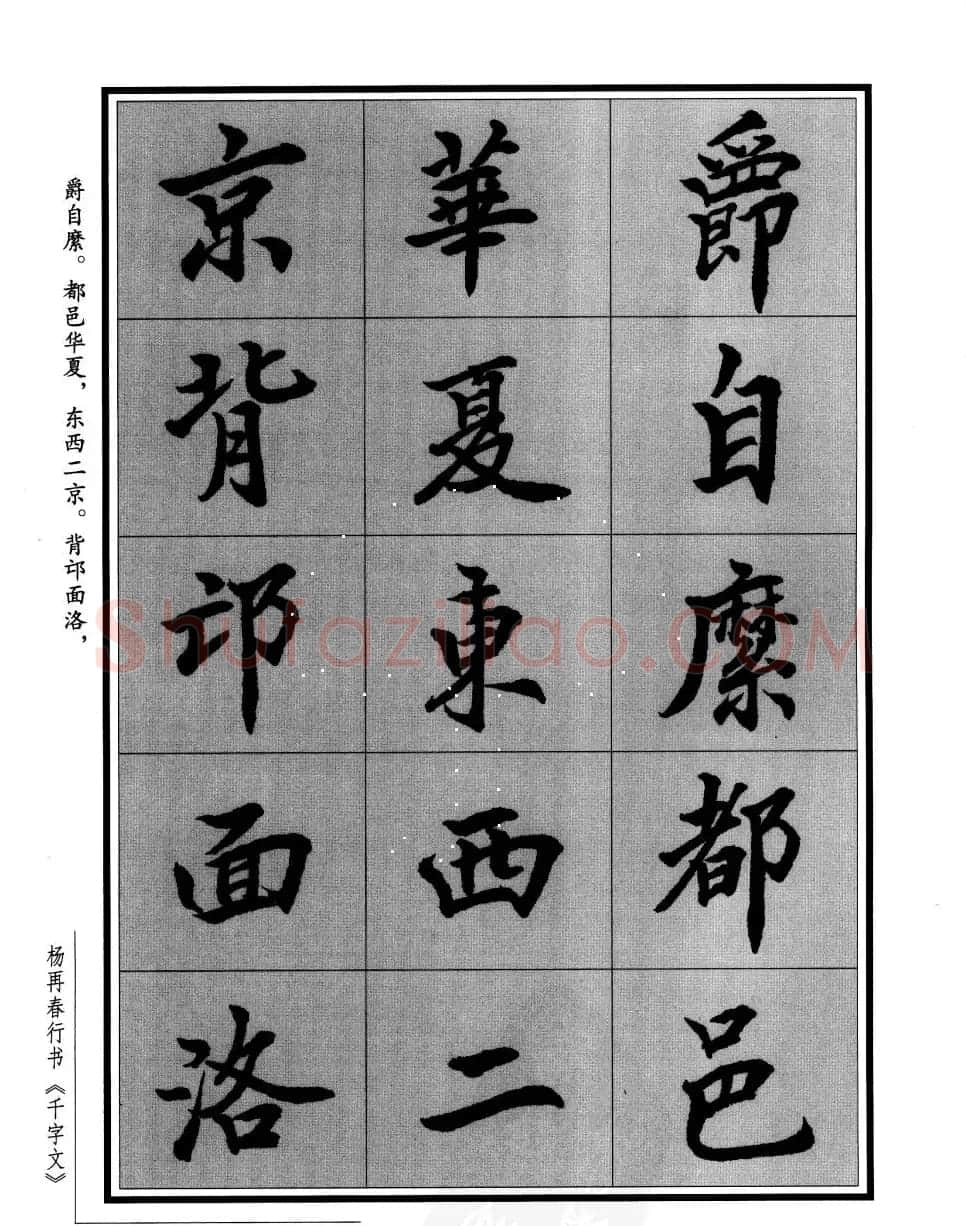 爵自縻都邑
華夏東西二
京背邙面洛
爵自縻。都邑华夏，东西二京。背邙面洛，
杨再春行书《千字文》
Shufaziliao.COM